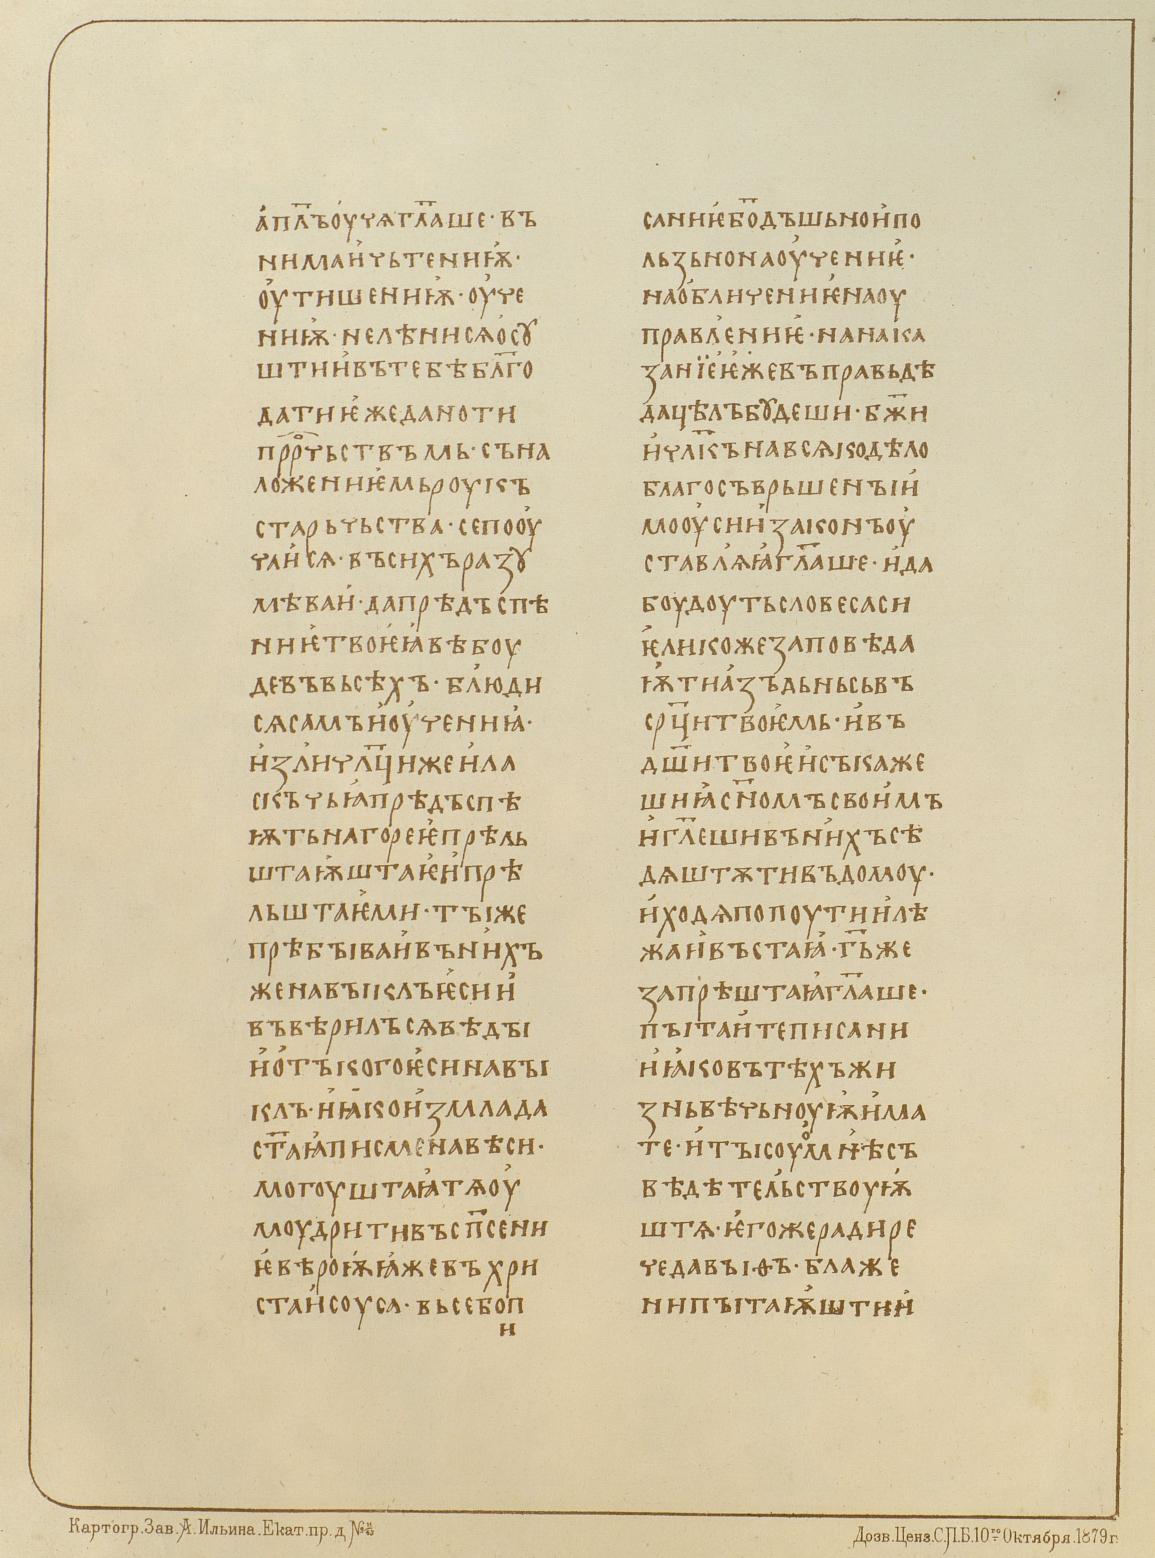 апл҃ъоучѧгл҃аше· въ
нимаичьтениꙗ·
оутишениѭ· оуче
ниѭ· нелѣнисѧосꙋ
штиивътебѣбл҃го
датиѥжеданоти
прⷪ҇рчьствъмь· съна
ложениѥмьроукъ
старьчьства· сепооу
чаисѧ· въсихъразꙋ
мѣваи· дапрѣдъспѣ
ниѥтвоѥꙗвѣбоу
девъвьсѣхъ· блюди
сѧсамъиоучениꙗ·
изличл҃цижеила
скъчьꙗпрѣдъспѣ
ѭтьнагореѥпрѣль
штаѭштаѥипрѣ
льштаѥми· тꙑже
прѣбꙑваивънихъ
женавꙑклъѥсии
въвѣрилъсѧвѣдꙑ
иотъкогоѥсинавꙑ
клъ· иꙗкоизмлада
ст҃аꙗписменавѣси·
могоуштаꙗтѧоу
моудритивъсп҃сени
ѥвѣроѭꙗжевъхри
стаисоуса· вьсебоп
и
саниѥбо҃дъшьноипо
льзьнонаоучениѥ·
наобличениѥнаоу
правлениѥ· нанака
заниѥѥжевъправьдѣ
дацѣлъбꙋдеши· бж҃и
ичл҃кънавсѧкодѣло
благосъврьшенꙑи
мооусиизаконъоу
ставлѧꙗгл҃аше· ида
боудоутьсловесаси
ѥликожезаповѣда
ѭтиазъдьньсьвъ
срц҃итвоѥмь· ивъ
дш҃итвоѥисъкаже
шиꙗсн҃омъсвоимъ
игл҃ешивънихъсѣ
дѧштѫтивъдомоу·
иходѧпопоутиилѣ
жаивъстаꙗ· гь҃же
запрѣштаꙗгл҃аше·
пꙑтаитеписани
иꙗковътѣхъжи
зньвѣчьноуѭима
те· итꙑсоуⷪ҇мнѣсъ
вѣдѣтельствоуѭ
штѧ· ѥгожерадире
чедавꙑѳъ· блаже
нипꙑтаѭштии
Картогр.Зав.А.Ильина.Екат.пр.д.№
Дозв.Ценз.С.П.Б.10го Октября.1879г.